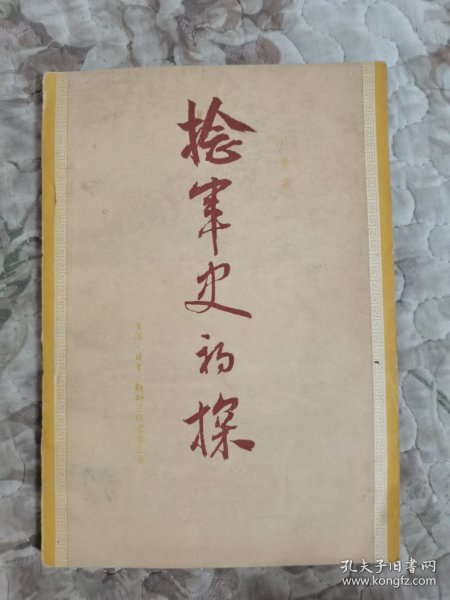 捻军史初探
生活·读书·新知三联书店出版
孔夫子旧书网
www.kongfz.com